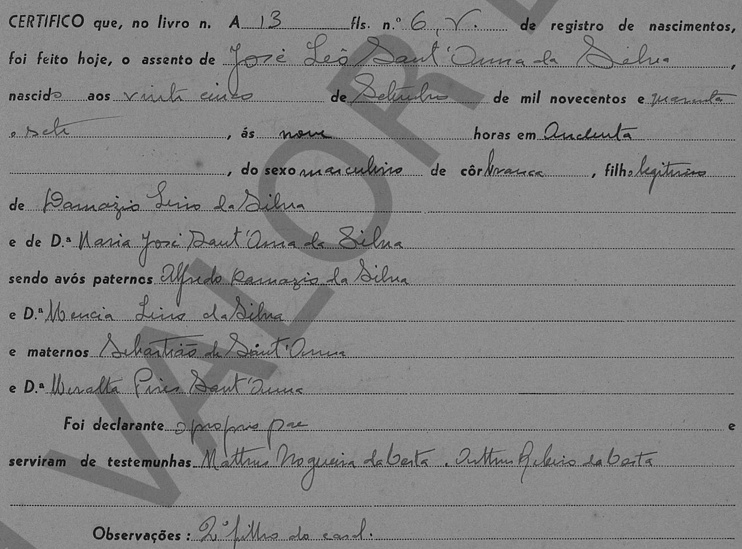 CERTIFICO que, no livro n. A 13 fls. n.º 6, V. de registro de nascimentos,
foi feito hoje, o assento de José Leô Sant'Anna da Silva,
nascido aos vinte cinco de Setembro de mil novecentos e quarenta
e sete, ás nove horas em
, do sexo masculino de côr branca, filho legitimo
de Damazio Lino da Silva
e de D.ª Maria José Sant'Anna da Silva
sendo avós paternos Alfredo Damazio da Silva
e D.ª Mencia Lino da Silva
e maternos Sebastião de Sant'Anna
e D.ª Pires Sant'Anna
Foi declarante o proprio pae e
serviram de testemunhas Matheus Nogueira da Costa, Arthur Ribeiro da Costa
Observações: 2º filho do casal.
VALOR